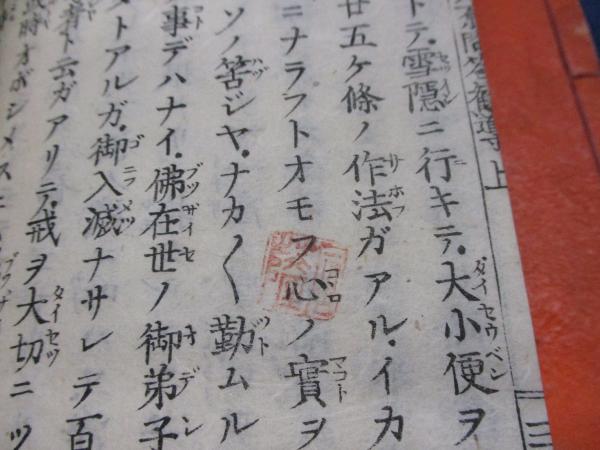 問答勧導 上
トテ、雪隠ニ行キテ、大小便ヲ
廿五ケ條ノ作法ガアル、イカ
ニナラフトオモフ心ノ實ヲ
ソノ筈ジヤ、ナカ〱勤ムル
事デハナイ、佛在世ノ御弟子
タトアルガ、御入滅ナサレテ百
者ト云ガアリテ、戒ヲ大切ニツ
時オボシメス
三